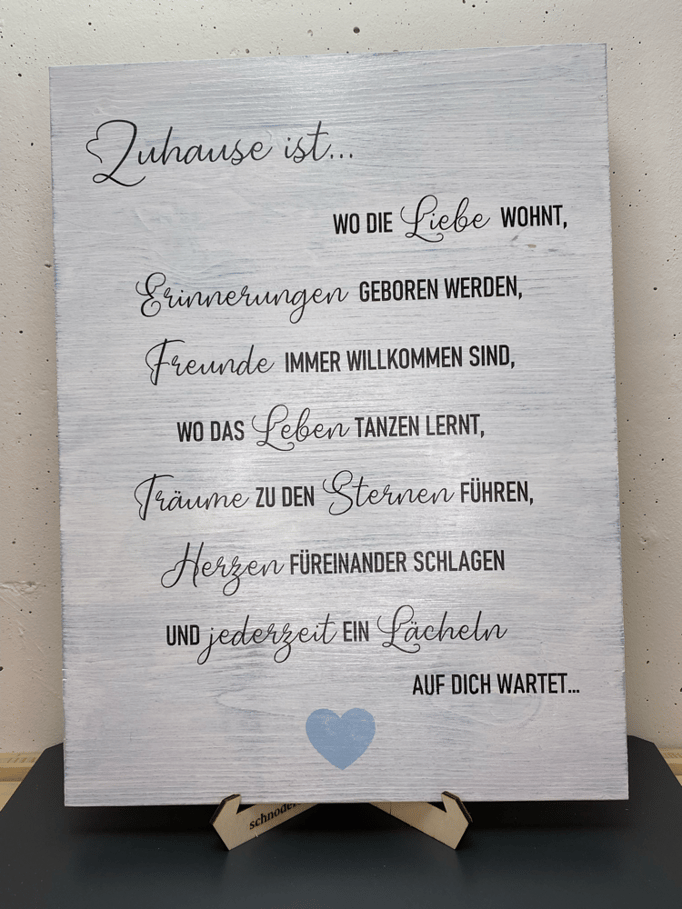 Zuhause ist...
WO DIE Liebe WOHNT,
Erinnerungen GEBOREN WERDEN,
Freunde IMMER WILLKOMMEN SIND,
WO DAS Leben TANZEN LERNT,
Träume ZU DEN Sternen FÜHREN,
Herzen FÜREINANDER SCHLAGEN
UND jederzeit EIN Lächeln
AUF DICH WARTET...